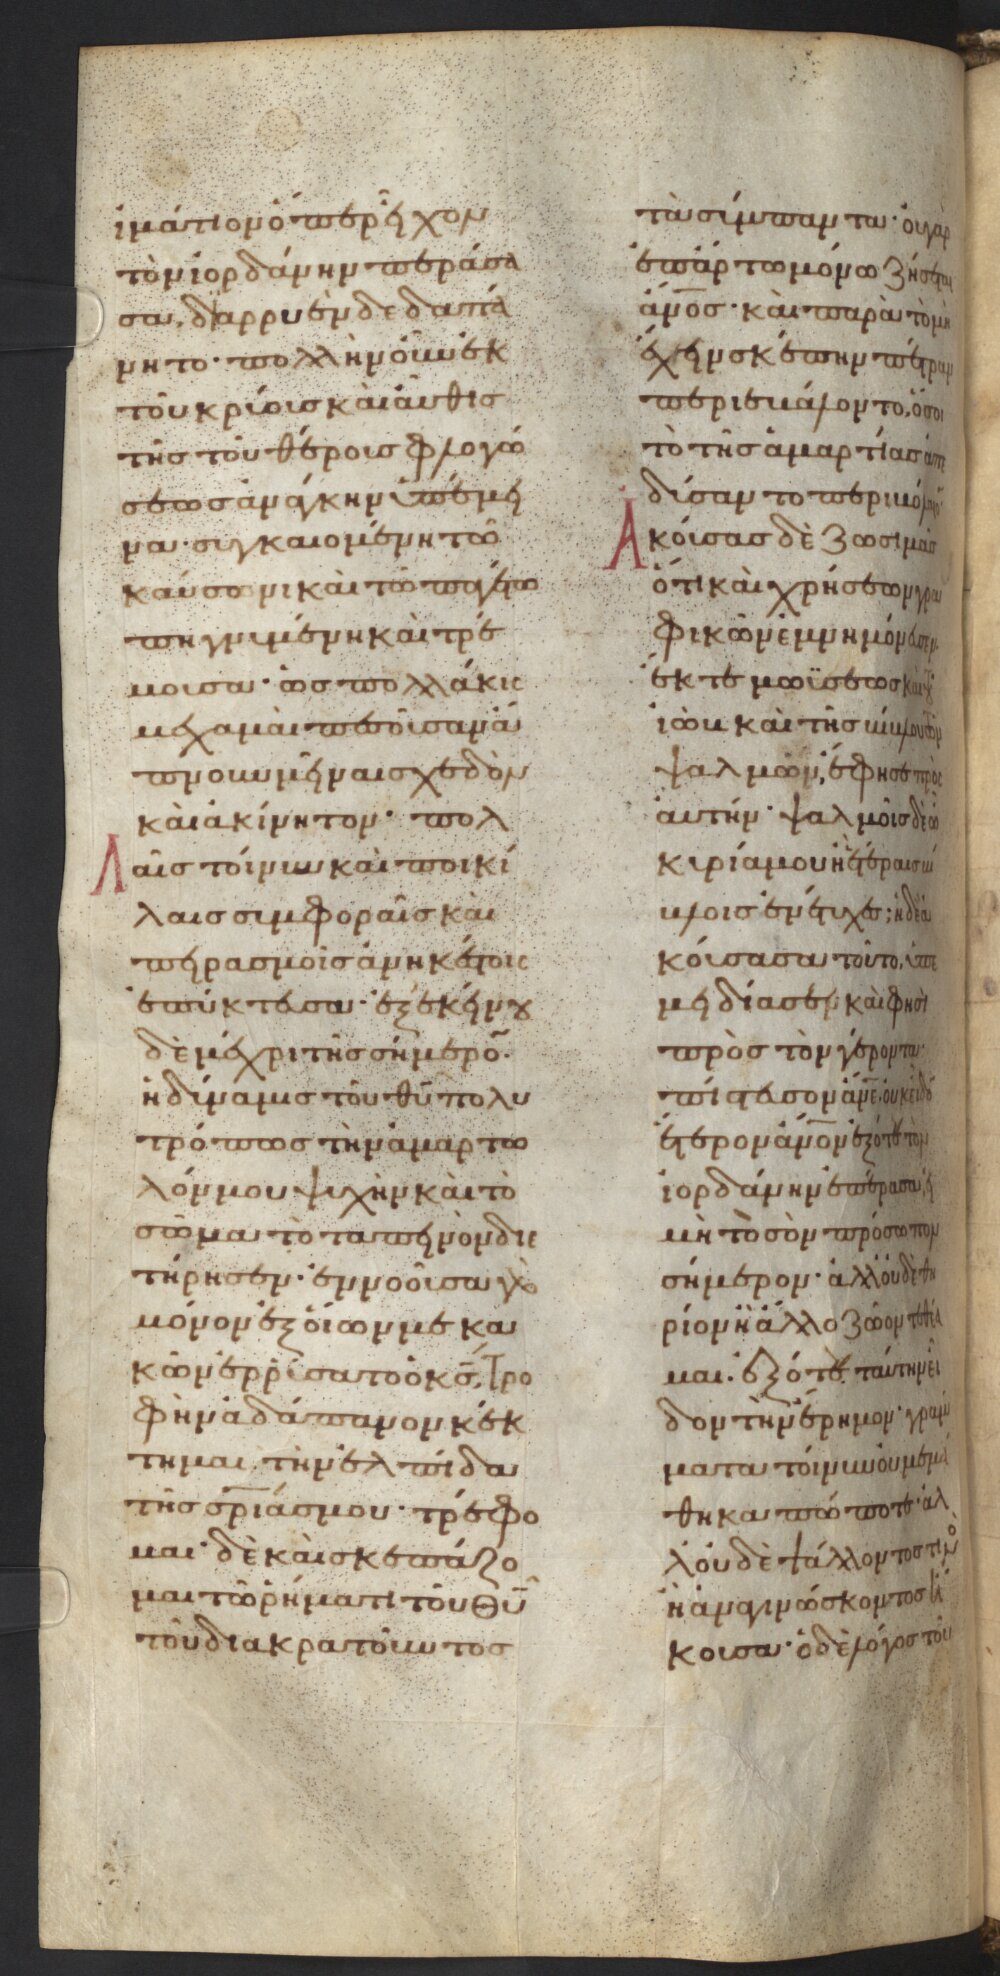 ἱμάτιον ὅπερ εἶχον
τὸν ἰορδάνην περάσα
σα, διαρρυὲν δεδαπά
νητο· πολλὴν οὖν ἐκ
τοῦ κρύοις καὶ αὖθις
τῆς τοῦ θέροις φλογώ
σεως ἀνάγκην ὑπέμει
να· συγκαιομένη τῶ
καύσωνι καὶ τῶ παγετῶ
πηγνυμένη καὶ τρέ
μουσα· ὡς πολλάκις
με χαμαὶ πεσοῦσαν ἄ
πνουν μεῖναι σχεδὸν
καὶ ἀκίνητον· πολ
λαῖς τοίνυν καὶ ποικί
λαις συμφοραῖς καὶ
πειρασμοῖς ἀνηκέστοις
ἐπύκτευσα· ἐξ ἐκείνου
δὲ μέχρι τῆς σήμερον·
ἡ δύναμις τοῦ θυ πολυ
τρόπως τὴν ἁμαρτω
λόν μου ψυχὴν καὶ τὸ
σῶμα τὸ ταπεινὸν διε
τήρησεν· ἐννοοῦσα γὰρ
μόνον ἐξ οἵων με κα
κῶν ἐρρύσατο ὁ κς, τρο
φὴν ἀδάπανον κέκ
τημαι τὴν ἐλπίδα
τῆς σρίας μου· τρέφο
μαι δὲ καὶ σκεπάζο
μαι τῶ ρήματι τοῦ θυ
τοῦ διακρατοῦντος
τὰ σύμπαντα· οὐ γὰρ
ἐπ' ἄρτω μόνω ζήσεται
ἄνος· καὶ παρὰ τὸ μὴ
ἔχειν σκέπην πέτραν
περιεβάλοντο, ὅσοι
τὸ τῆς ἁμαρτίας ἀπε
δύσαντο περιβόλαιον·
Ἀκούσας δὲ ζωσιμᾶς
ὅτι καὶ χρήσεων γρα
φικῶν ἐμνημόνευσεν,
ἔκ τε μωϋσέως καὶ τοῦ
ἰὼβ καὶ τῆς βίβλου τῶν
ψαλμῶν, ἔφησε πρὸς
αὐτήν· ψαλμοῖς δὲ ὦ
κυρία μου ἢ ἑτέραις βί
βλοις ἐνέτυχες; ἡ δὲ ἀ
κούσασα τοῦτο, ὑπε
μειδίασεν καὶ φησὶ
πρὸς τὸν γέροντα·
πίστευσον ἄνε, οὐκ εἶδον
ἕτερον ἄνον ἐξότε τὸν
ἰορδάνην ἐπέρασα, εἰ
μὴ τὸ σὸν πρόσωπον
σήμερον· ἀλλ' οὐδὲ θη
ρίον ἢ ἄλλο ζῶον τεθέα
μαι· ἐξότε ταύτην εἶ
δον τὴν ἔρημον· γράμ
ματα τοίνυν οὐ μεμά
θηκα πώποτε· ἀλ
λ' οὐδὲ ψάλλοντος τινὸς
ἢ ἀναγινώσκοντος ὑπή
κουσα· ὁ δὲ λόγος τοῦ